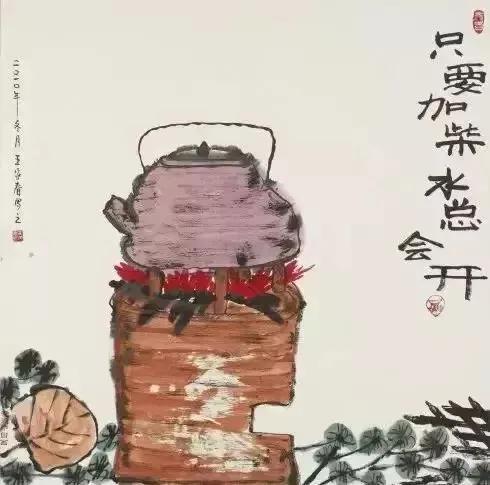 只要加柴水总会开
二〇二〇年冬月王家春写之